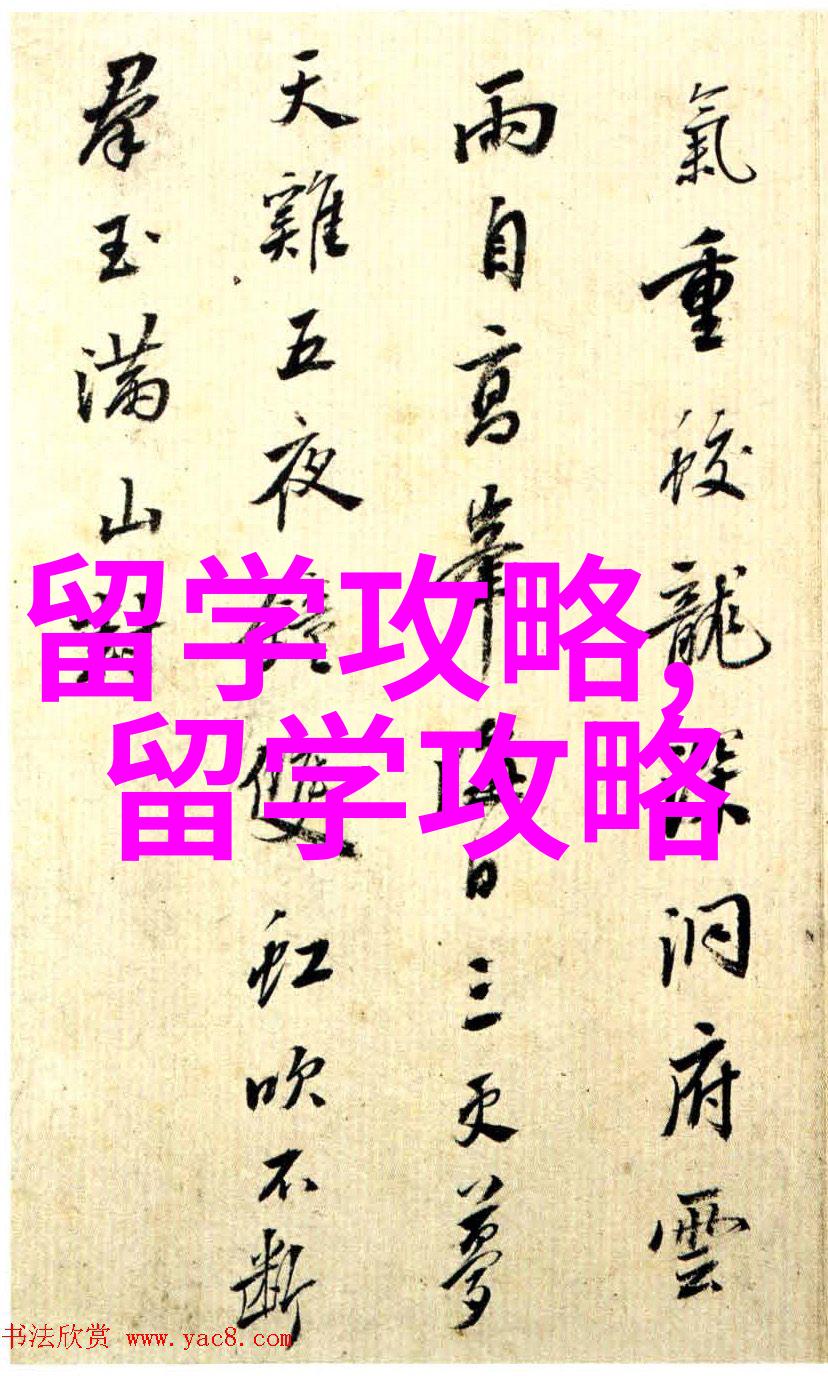 氣重蛟龍深洞府雲
雨自高峯海日三更夢
天雞五夜雙虹吹不斷
羣玉滿山
留学攻略,
留学攻略
书法欣赏 www.yac8.com